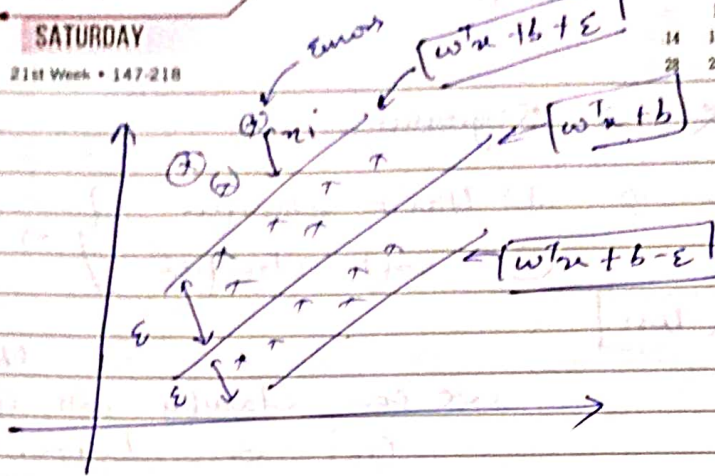 SATURDAY
21st Week • 147-218
14
28 2
Errors
wᵀx + b + ε
xi
wᵀx + b
wᵀx + b - ε
ε
ε